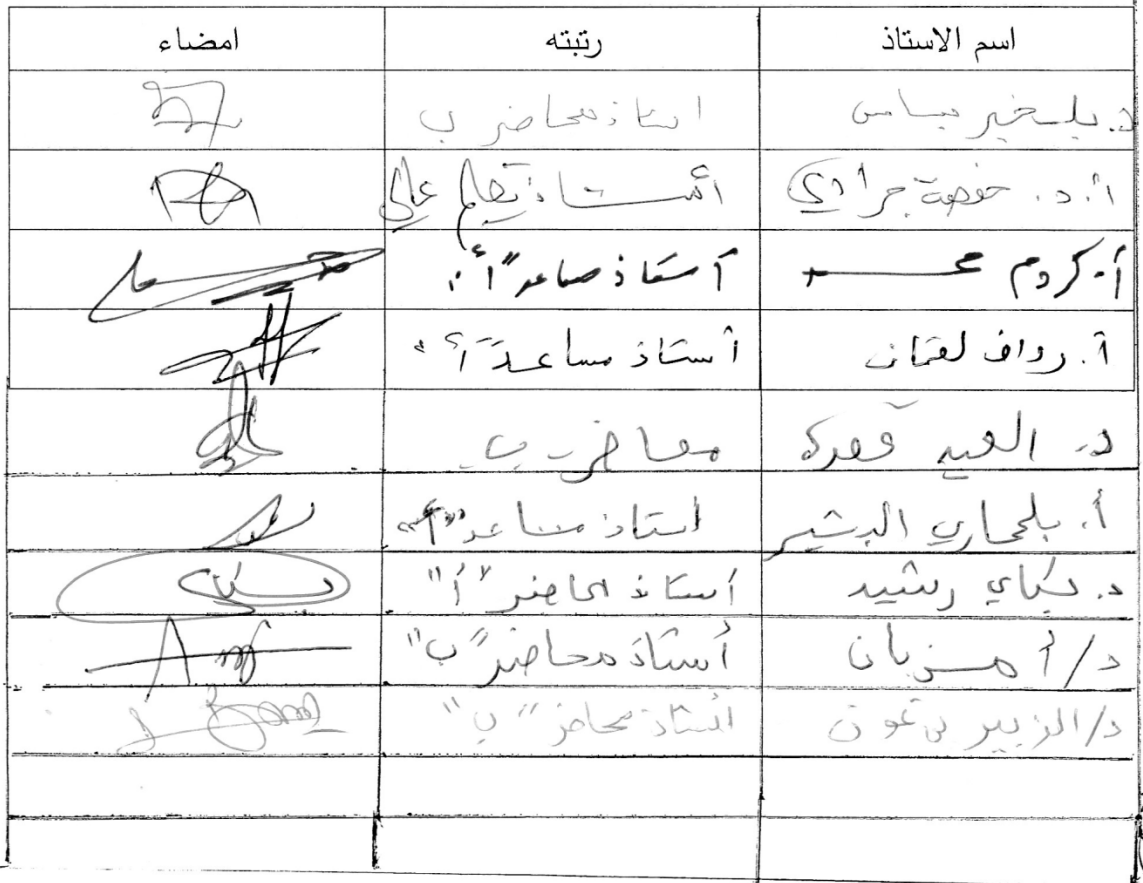 اسم الاستاذ رتبته امضاء
د. بلخير استاذ محاضر ب
أ.د. حفصة جرادي أستاذ تعليم عالي
أ. كروم محمد أستاذ مساعد "أ"
أ. رواف لقمان أستاذ مساعد "أ"
د. العيد قعدة محاضر ب
أ. بلحاري البشير استاذ مساعد "أ"
د. بكاي رشيد أستاذ محاضر "أ"
د/ أ مزيان أستاذ محاضر "ب"
د/ الزبير استاذ محاضر "ب"